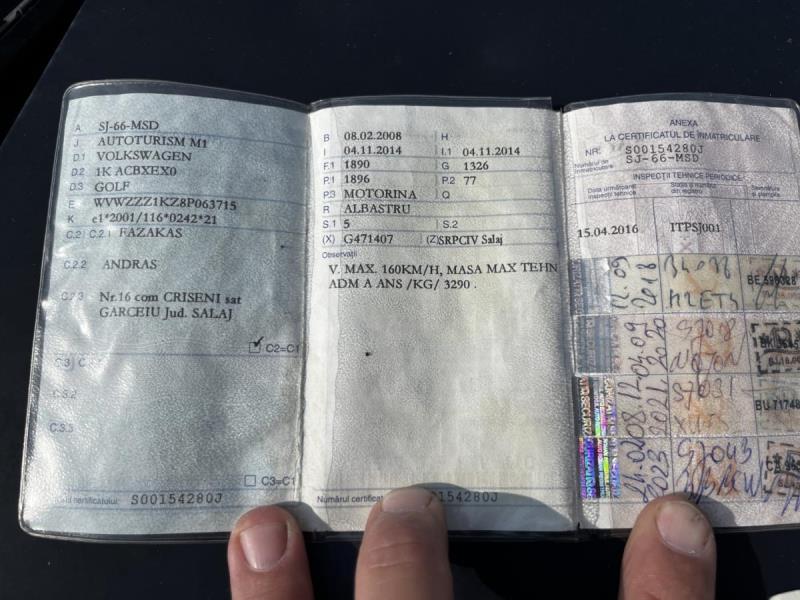 A SJ-66-MSD
J. AUTOTURISM M1
D.1 VOLKSWAGEN
D.2 1K ACBXEX0
D.3 GOLF
E WVWZZZ1KZ8P063715
K e1*2001/116*0242*21
C.2 C.2.1 FAZAKAS
C.2.2 ANDRAS
C.2.3 Nr.16 com CRISENI sat
GARCEIU Jud. SALAJ
C2=C1
C.3
C.3.2
C.3.3
C3=C1
certificatului: S00154280J
B 08.02.2008 H
I 04.11.2014 I.1 04.11.2014
F.1 1890 G 1326
P.1 1896 P.2 77
P.3 MOTORINA Q
R ALBASTRU
S.1 5 S.2
(X) G471407 (Z) SRPCIV Salaj
Observații
V. MAX. 160KM/H, MASA MAX TEHN
ADM A ANS /KG/ 3290 .
Numărul certificat 154280J
ANEXA
LA CERTIFICATUL DE ÎNMATRICULARE
NR: S00154280J
Numărul de înmatriculare SJ-66-MSD
INSPECȚII TEHNICE PERIODICE
Data următoarei inspecții tehnice
Stația și numărul din registru
Semnătura și ștampila
15.04.2016 ITPSJ001
2018
2020
2021
BU 71748
2023